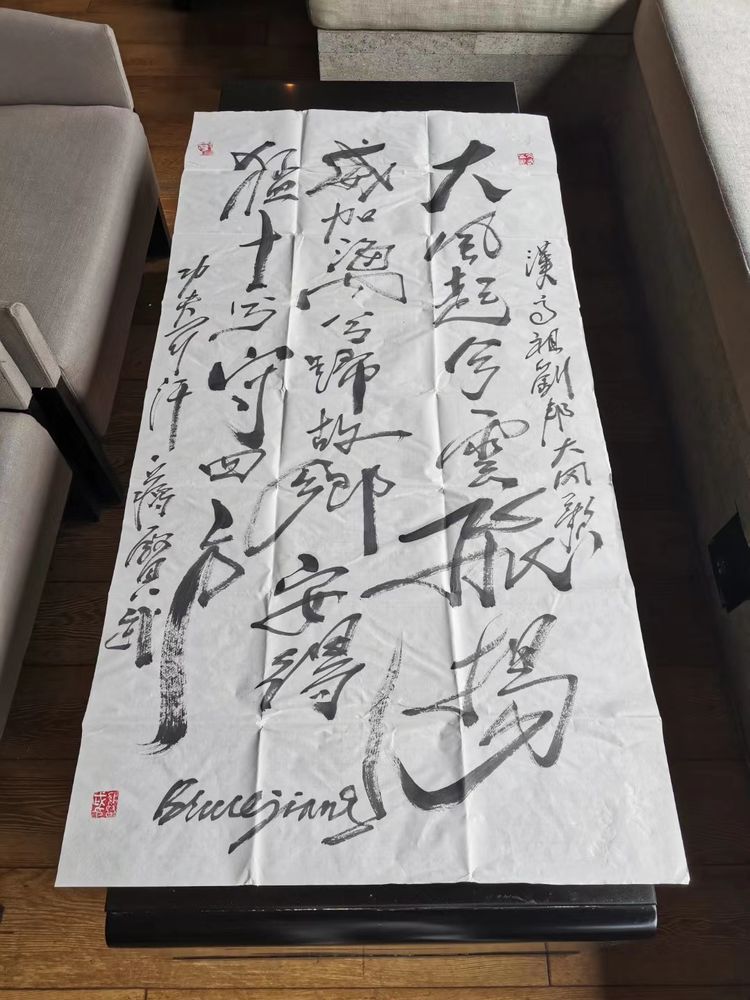 漢高祖劉邦大风歌
大風起兮雲飛揚
威加海内兮歸故鄉安得
猛士兮守四方
功夫 蔣賢武
Bruce jiang